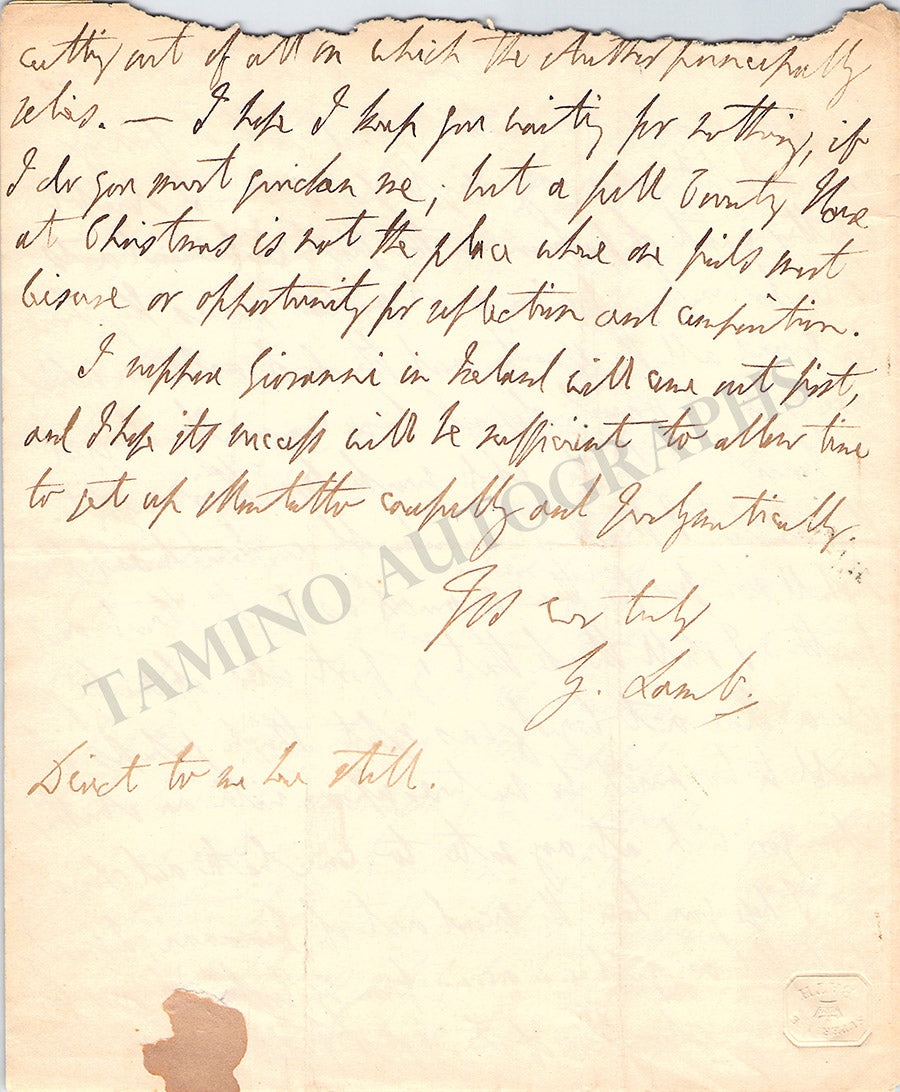 cutting out of all on which the Author principally
relies. — I hope I keep you waiting for nothing, if
I do you must pardon me; but a full County House
at Christmas is not the place where one finds most
leisure or opportunity for reflection and composition.
I suppose Giovanni in Ireland will come out first,
and I hope its success will be sufficient to allow time
to get up carefully and
Yrs ever truly
G. Lamb.
Direct to me here still.
TAMINO AUTOGRAPHS
BATH